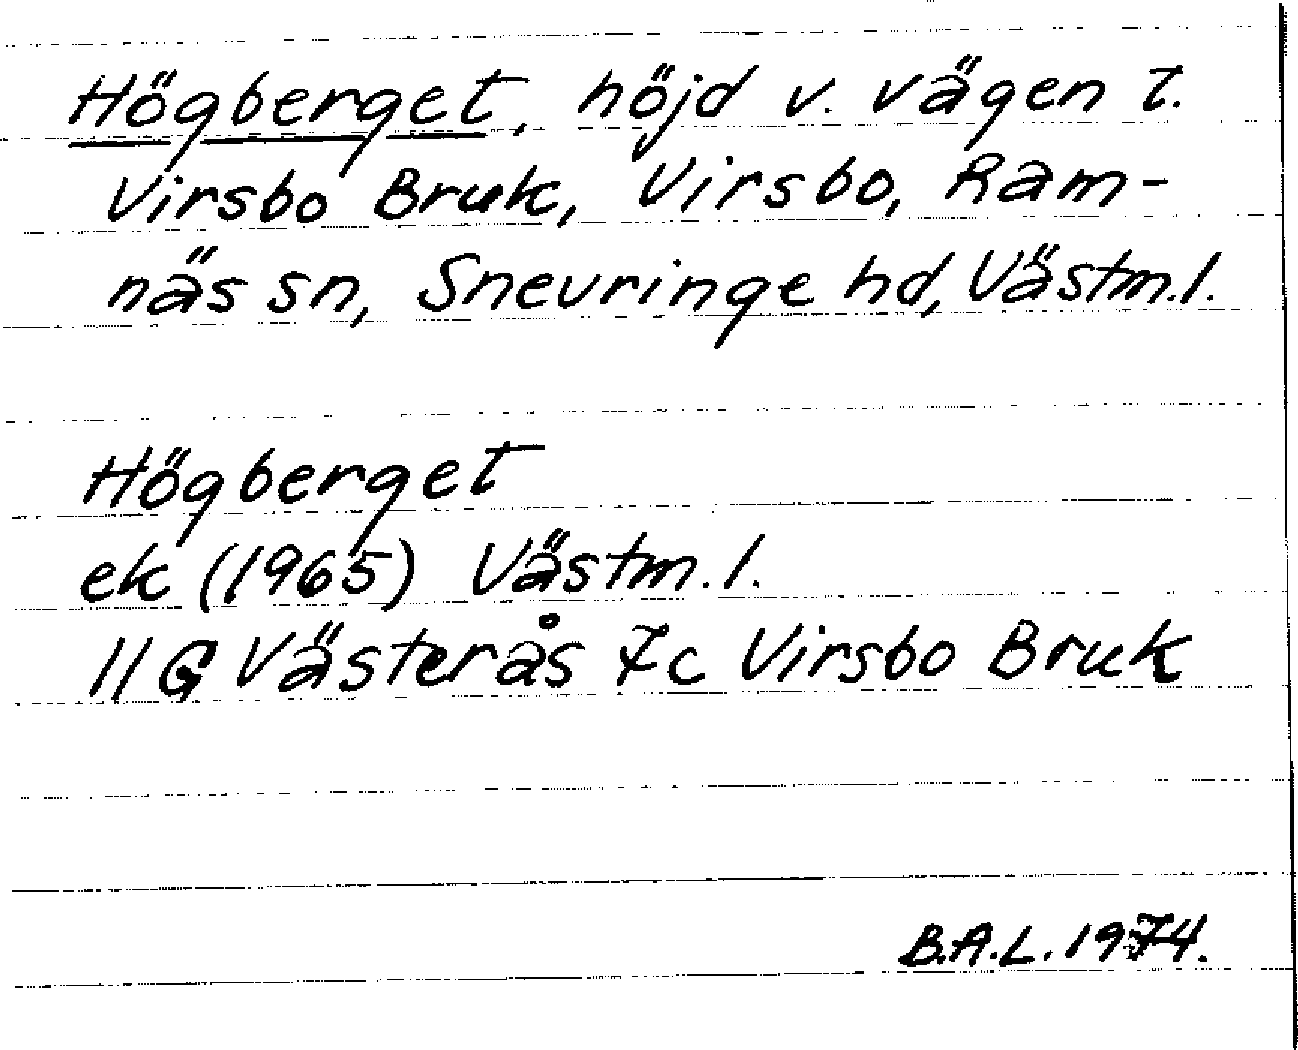 Högberget, höjd v. vägen t.
Virsbo Bruk, Virsbo, Ram-
näs sn, Snevringe hd, Västm.l.
Högberget
ek (1965) Västm.l.
11G Västerås 7c Virsbo Bruk
B.A.L. 1974.